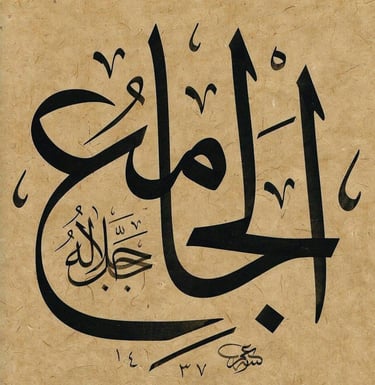 الجَامِعُ
جَلَّ جَلَالُهُ
١٤٣٧